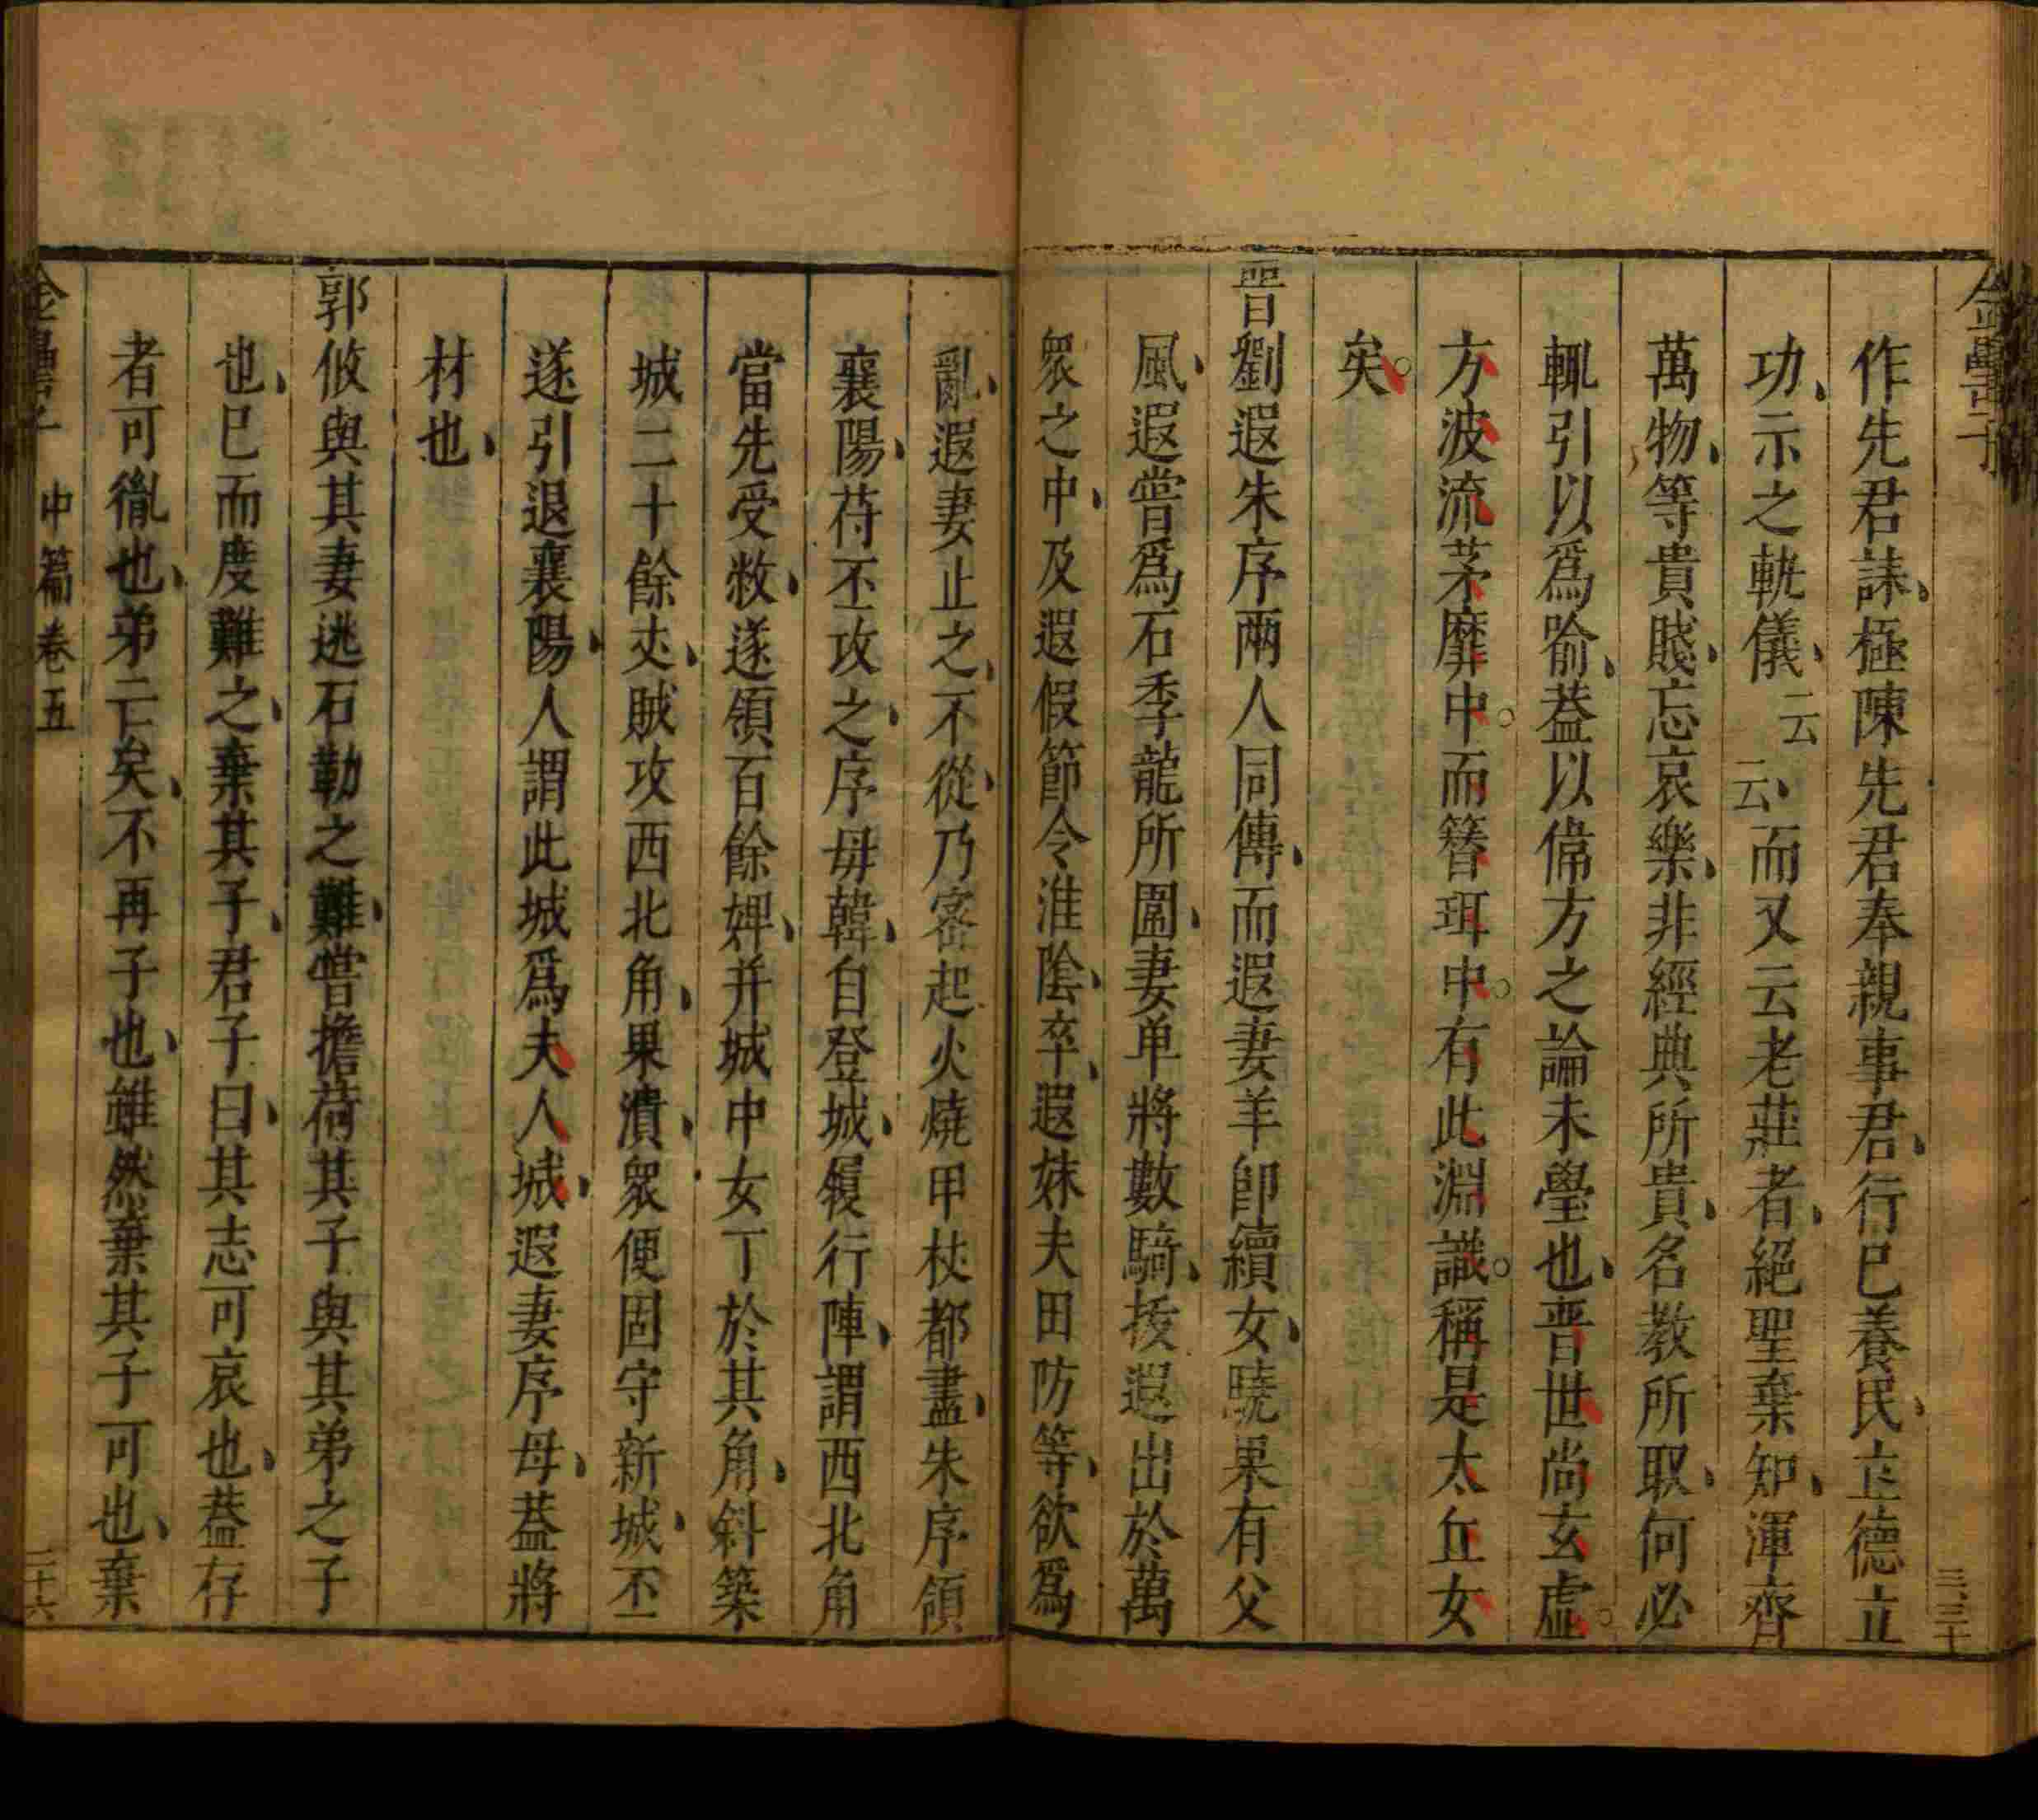 作先君誄極陳先君奉親事君行已養民立德立
功示之軌儀云云而又云老莊者絕聖棄知渾齊
萬物等貴賤忘哀樂非經典所貴名教所取何必
輒引以爲喻葢以偉方之論未瑩也晋世尚玄虛
方波流茅靡中而簪珥中有此淵識稱是太丘女
矣
晋劉遐朱序兩人同傳而遐妻羊卽續女驍果有父
風遐嘗爲石季龍所圍妻单將數騎拔遐出於萬
衆之中及遐假節令淮陰卒遐妹夫田防等欲爲
亂遐妻止之不從乃密起火燒甲杖都盡朱序領
襄陽苻丕攻之序母韓自登城履行陣謂西北角
當先受敝遂領百餘婢并城中女丁於其角斜築
城二十餘丈賊攻西北角果潰衆便固守新城丕
遂引退襄陽人謂此城爲夫人城遐妻序母葢將
材也
郭攸與其妻逃石勒之難嘗擔荷其子與其弟之子
也已而度難之棄其子君子曰其志可哀也葢存
者可徹也弟亡矣不再子也雖然棄其子可也棄
金罍子 中篇卷五 二十六